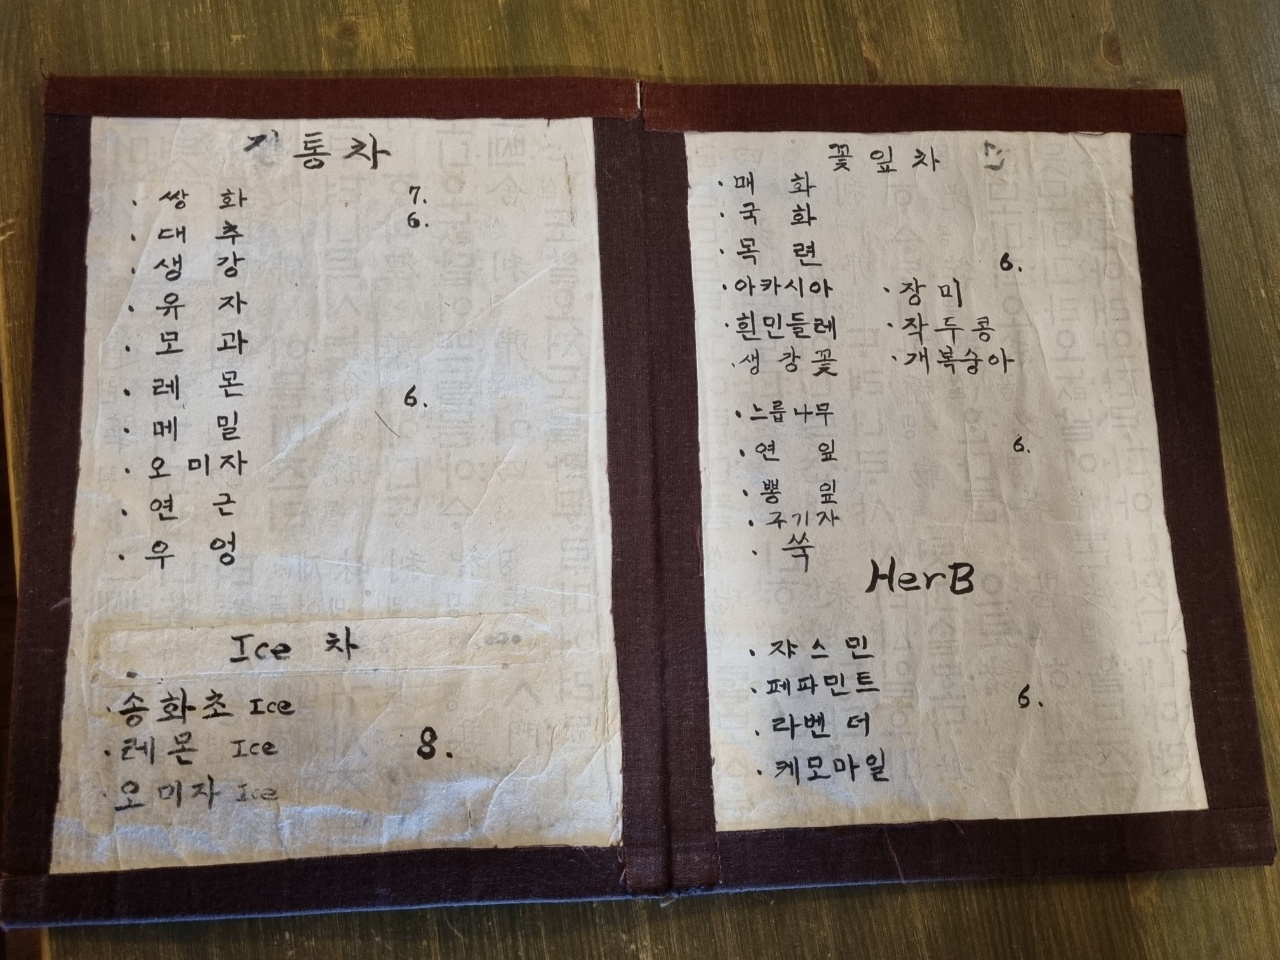 전통차
· 쌍 화 7.
· 대 추 6.
· 생 강
· 유 자
· 모 과
· 레 몬 6.
· 메 밀
· 오 미 자
· 연 근
· 우 엉
Ice 차
· 송화초 Ice
· 레몬 Ice 8.
· 오미자 Ice
꽃잎차
· 매 화
· 국 화
· 목 련 6.
· 아카시아 · 장미
· 흰민들레 · 작두콩
· 생강꽃 · 개복숭아
· 느릅나무
· 연 잎 6.
· 뽕 잎
· 구기자
· 쑥
HerB
· 쟈스민
· 페파민트 6.
· 라벤더
· 케모마일